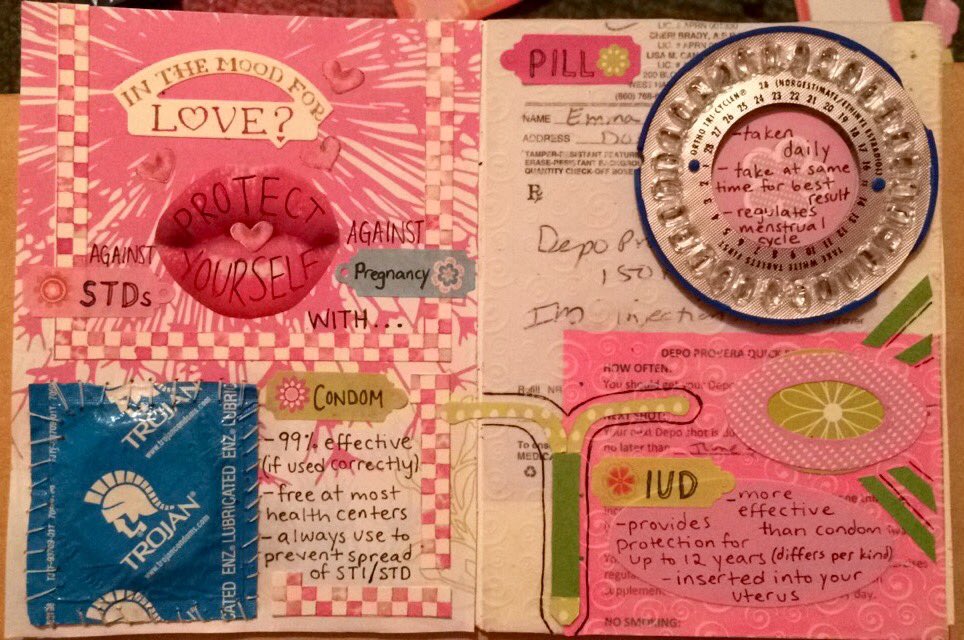 IN THE MOOD FOR
LOVE?
PROTECT
YOURSELF
AGAINST
STDs
AGAINST
Pregnancy
WITH...
TROJAN
www.trojancondoms.com
TROJAN®
www.trojancondoms.com
ENZ LUBRICATED ENZ LUBRICATED
CONDOM
-99% effective
(if used correctly)
-free at most
health centers
-always use to
prevent spread
of STI/STD
PILL
NAME Emma
ADDRESS
TAMPER-RESISTANT
ERASE-RESISTANT
QUANTITY CHECK-OFF
Rx
Depo
150
Im injection
ORTHO TRI-CYCLEN® 28 (NORGESTIMATE/ETHINYL ESTRADIOL)
-taken
daily
-take at same
time for best
result
-regulates
menstrual
cycle
DEPO PROVERA QUICK
HOW OFTEN:
You should get your Depo
NEXT SHOT:
Your next Depo shot is
no later than June
IUD
-more
effective
than condom
-provides
protection for
up to 12 years (differs per kind)
-inserted into your
uterus
day.
NO SMOKING: